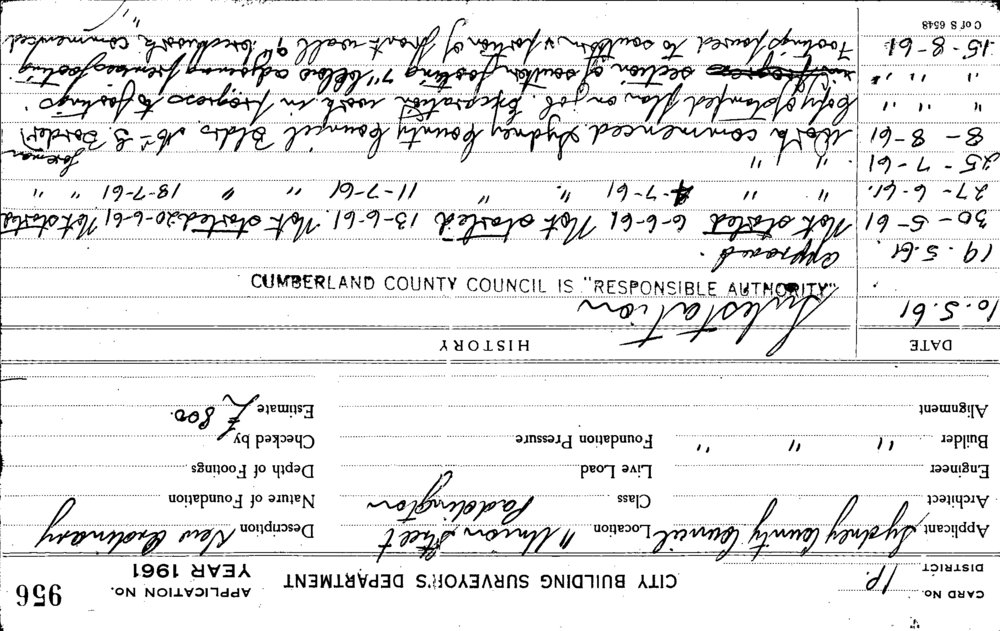 CARD NO. 1P. CITY BUILDING SURVEYOR'S DEPARTMENT APPLICATION NO. 956
DISTRICT YEAR 1961
Applicant Sydney County Council Location Union Street Description New Ordinary
Architect Class Paddington Nature of Foundation
Engineer Live Load Depth of Footings
Builder " " " Foundation Pressure Checked by
Alignment Estimate £800.
DATE HISTORY
10.5.61 Substation
CUMBERLAND COUNTY COUNCIL IS "RESPONSIBLE AUTHORITY"
19.5.61. approved.
30-5-61 Not started 6-6-61 Not started 13-6-61. Not started 20-6-61 Not started
27-6-61. " " 4-7-61 " " 11-7-61 " " 18-7-61 " "
25-7-61 " " foreman
8-8-61 Work commenced Sydney County Council Bldrs Mr S. )
" " " Copy of stamped plan on job. Excavation work in progress to footings.
" " " section of southern footing 7" below adjoining premises footing
15-8-61 Footings poured to southern & portion of front wall 9" brickwork commenced
C of S 6548